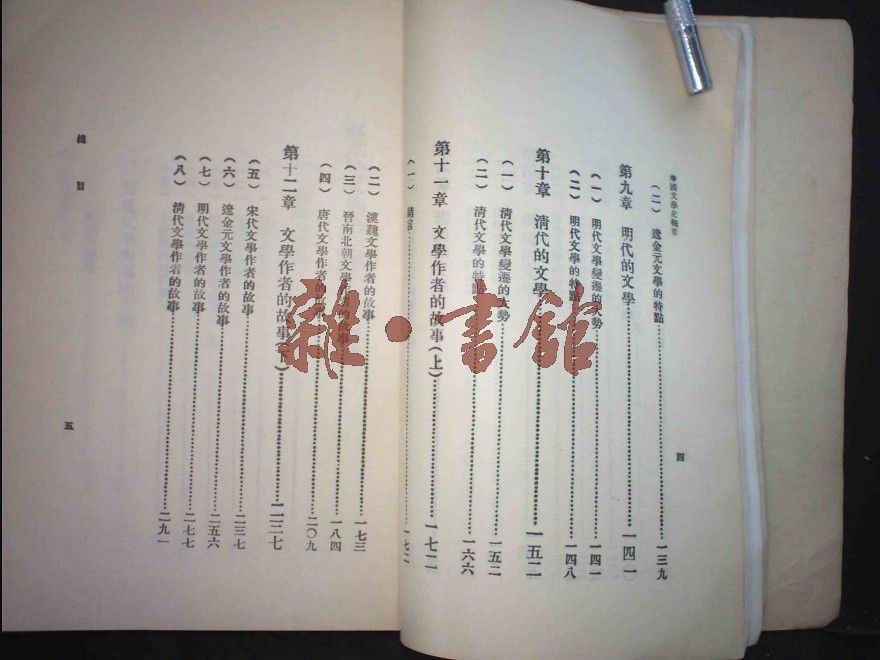 中國文學史概要
(二) 遼金元文學的特點……一三九
第九章 明代的文學……一四一
(一) 明代文學變遷的大勢……一四一
(二) 明代文學的特點……一四八
第十章 清代的文學……一五二
(一) 清代文學變遷的大勢……一五二
(二) 清代文學的特點……一六六
第十一章 文學作者的故事(上)……一七二
(一) 緒言……一七二
四
(二) 漢魏文學作者的故事……一七三
(三) 晉南北朝文學作者的故事……一八四
(四) 唐代文學作者的故事……二〇九
第十二章 文學作者的故事(下)……二三七
(五) 宋代文學作者的故事……二三七
(六) 遼金元文學作者的故事……二五六
(七) 明代文學作者的故事……二七七
(八) 清代文學作者的故事……二九一
總目
五
雜·書館